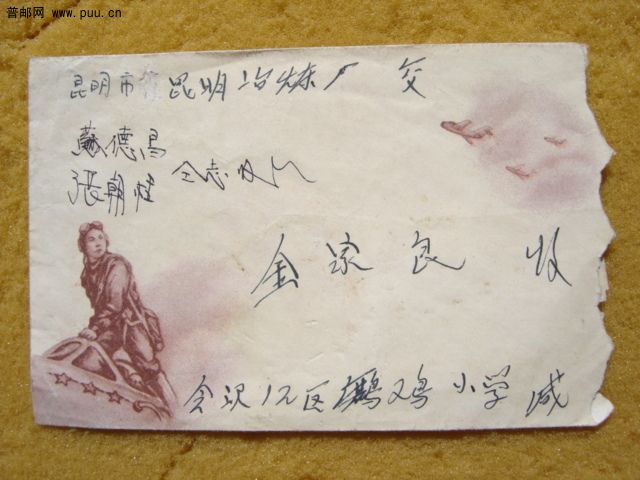 普邮网 www.puu.cn
昆明市 昆明冶炼厂 交
蘇德昌
張朝 仝志收
金家良 收
会沢 区 鸡 小学 咸